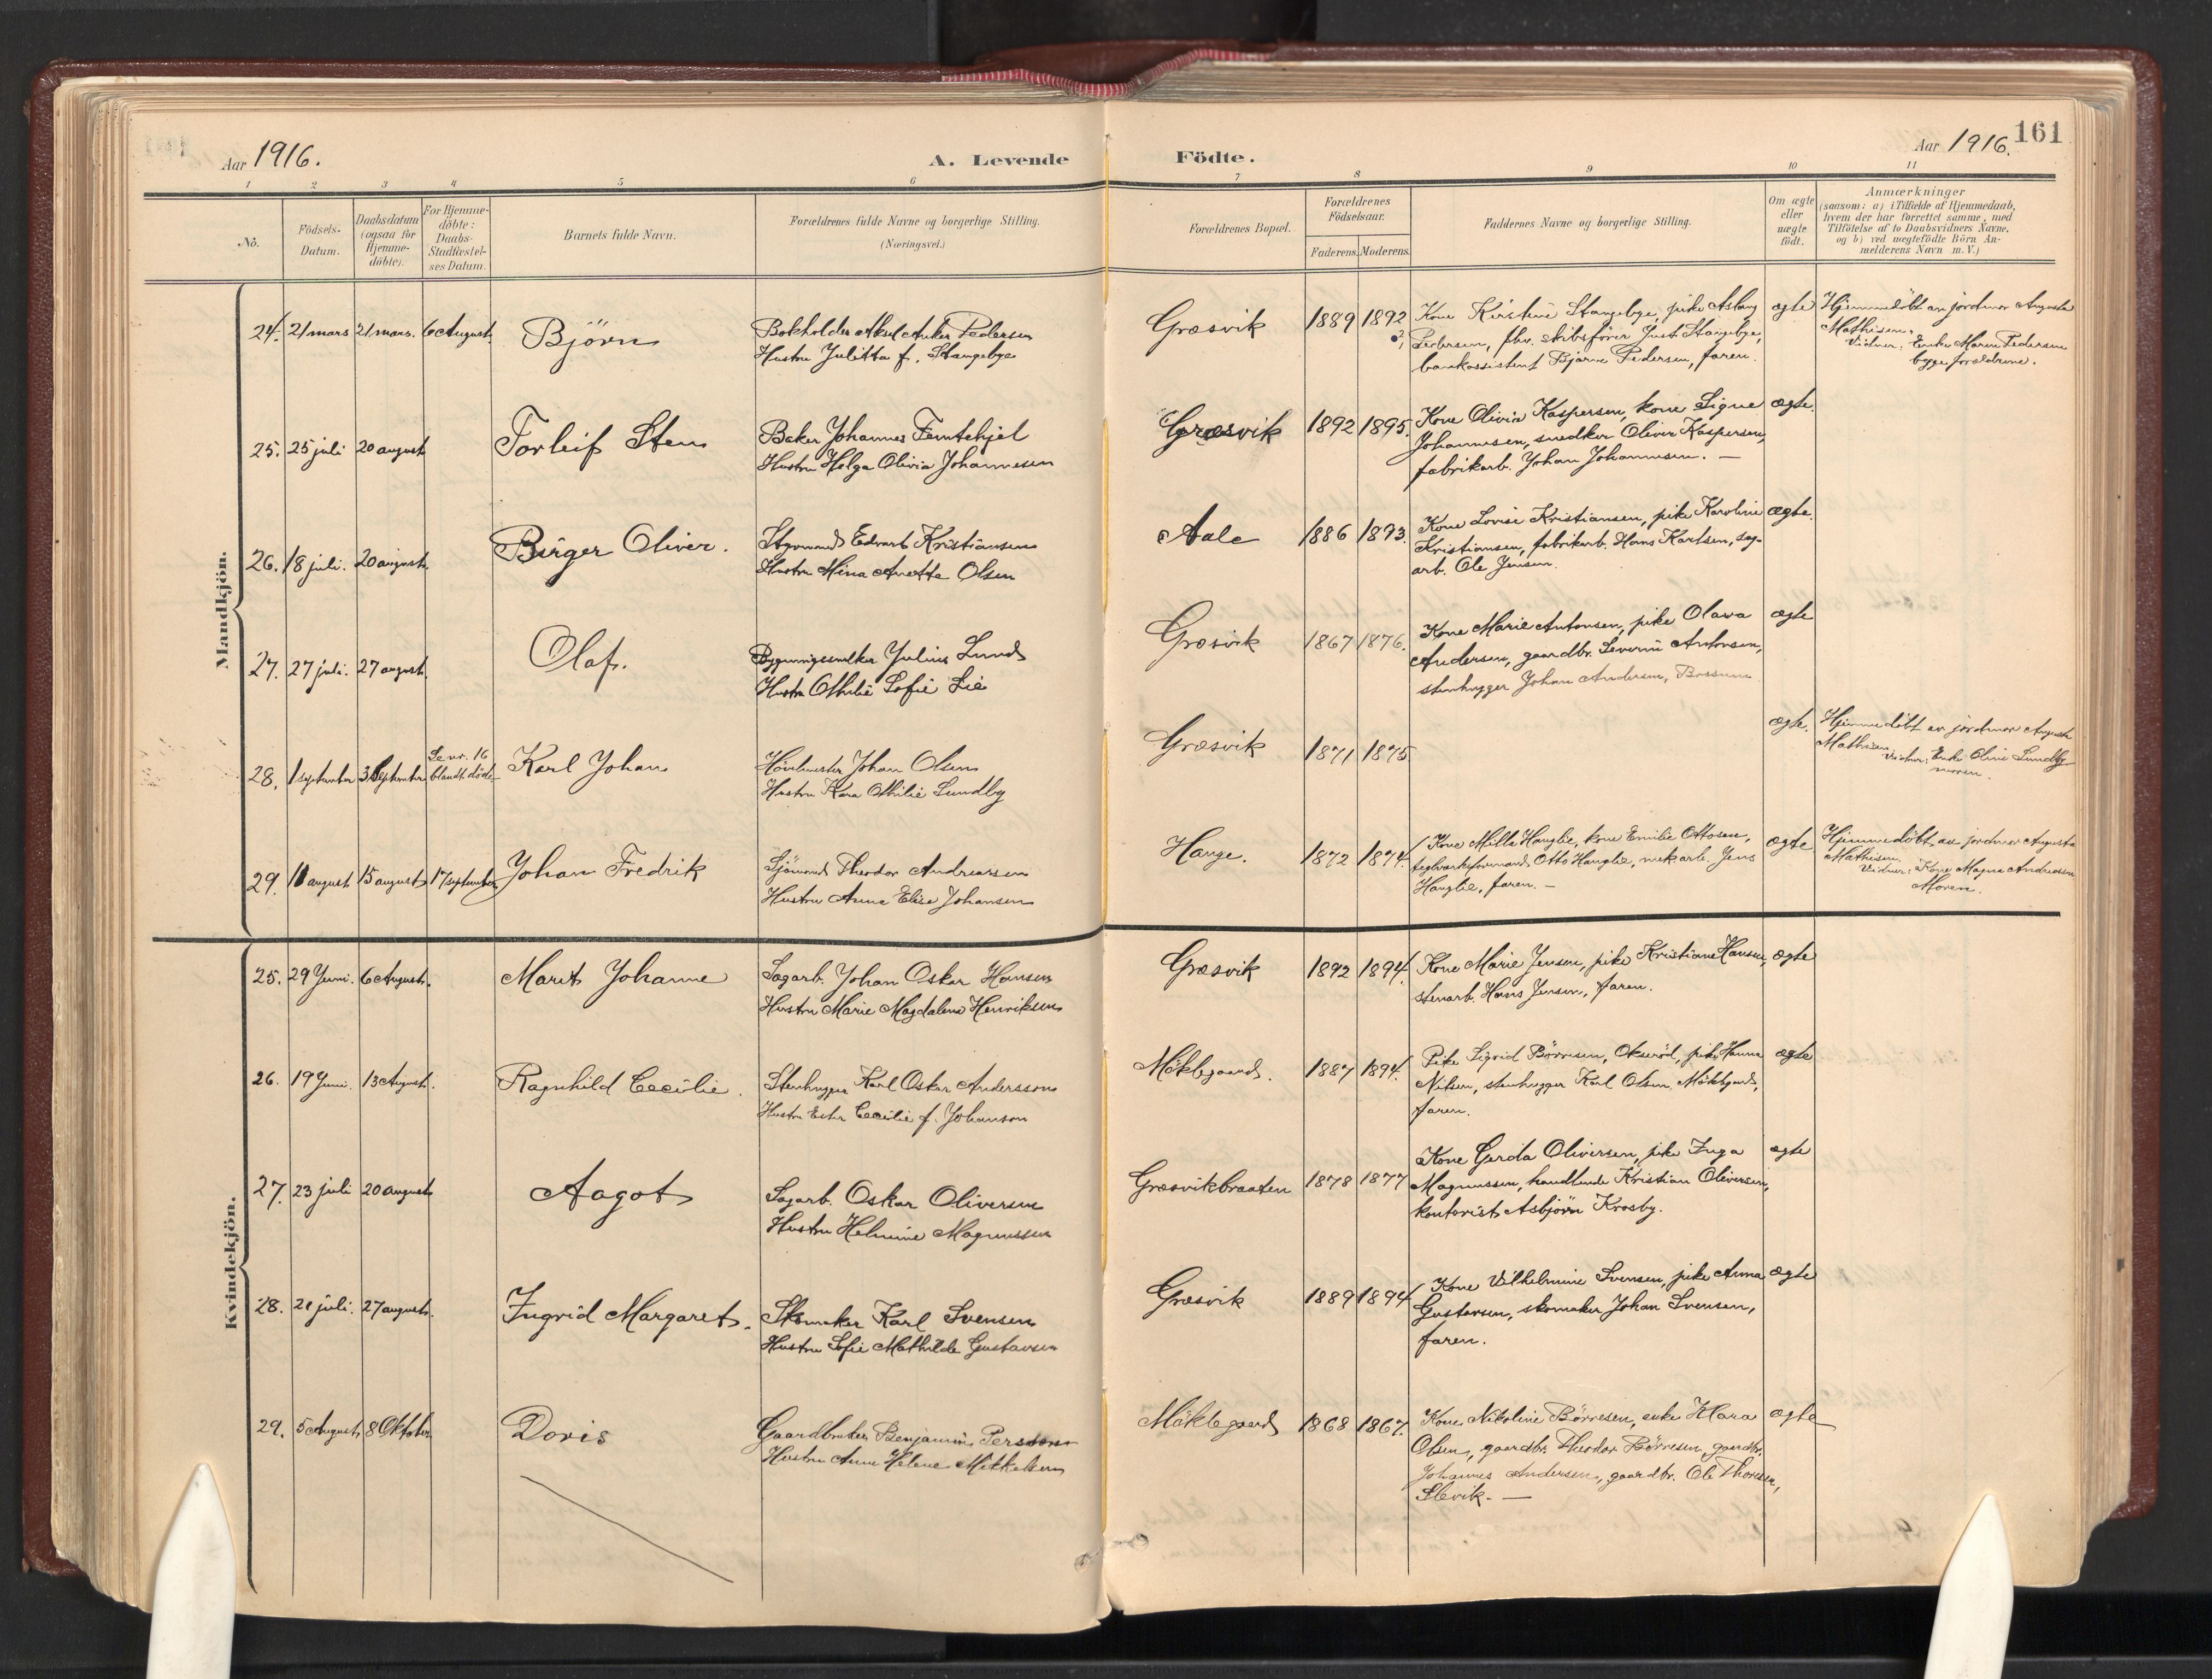 Aar 1916.
A. Levende
Födte.
Aar 1916.
161
1 2 3 4 5 6 7 8 9 10 11
Nô.
Födsels-
Datum.
Daabsdatum
(ogsaa for
Hjemme-
döbte).
For Hjemme-
döbte:
Daabs-
Stadfæstel-
ses Datum.
Barnets fulde Navn.
Forældrenes fulde Navne og borgerlige Stilling.
(Næringsvei.)
Forældrenes Bopæl.
Forældrenes
Födselsaar.
Faderens. Moderens.
Faddernes Navne og borgerlige Stilling.
Om ægte
eller
uægte
födt.
Anmærkninger
(saasom: a) i Tilfælde af Hjemmedaab,
hvem der har forrettet samme, med
Tilföielse af to Daabsvidners Navne,
og b) ved uægtefödte Börn An-
melderens Navn m. V.)
Mandkjön.
24. 21 mars 21 mars. 6 August. Björn
Bokholder Aksel Anker Pedersen
Hustru Julitta f. Stangebye
Græsvik 1889 1892
Kone Kirstine Stangebye, pike Aslaug
Pedersen, fhv. skibsförer Just Stangebye,
bankassistent Bjarne Pedersen, faren.
ægte
Hjemmedöbt av jordmor Augusta
Mathisen.
Vidner: Enke Maren Pedersen
begge forældrene.
25. 25 juli 20 august Torleif Sten
Baker Johannes Femtehjel
Hustru Helga Olivia Johannesen
Græsvik 1892 1895.
Kone Olivia Kaspersen, kone Signe
Johannesen, snedker Oliver Kaspersen,
fabrikarb. Johan Johannesen. —
ægte.
26. 18 juli. 20 august. Birger Oliver.
Styrmand Edvart Kristiansen
Hustru Mina Anette Olsen
Aale 1886 1893.
Kone Lovise Kristiansen, pike Karoline
Kristiansen, fabrikarb. Hans Karlsen, sag-
arb. Ole Jensen.
ægte.
27. 27 juli. 27 august. Olaf.
Bygningssnedker Julius Lund
Hustru Othilie Sofie Lie
Græsvik 1867 1876.
Kone Marie Antonsen, pike Olava
Andersen, gaardbr. Severin Antonsen,
stenhugger Johan Andersen, Bossum
ægte
28. 1 september 3 September
Se nr. 16
blandt döde
Karl Johan
Hövelmester Johan Olsen
Hustru Kara Othilie Lundby
Græsvik 1871 1875.
ægte.
Hjemmedöbt av jordmor Augusta
Mathisen.
Vidner: Enke Oline Lundby
moren.
29. 11 august 15 august 17 september Johan Fredrik
Sjömand Theodor Andreassen
Hustru Anna Elise Johansen
Hauge. 1872 1874.
Kone Milla Hauglie, kone Emilie Ottosen,
teglverksformand Otto Hauglie, mek arb. Jens
Hauglie, faren. —
ægte
Hjemmedöbt av jordmor Augusta
Mathisen.
Vidner: Kone Magna Andresen
Moren.
Kvindekjön.
25. 29 Juni. 6 August. Marit Johanne
Sagarb. Johan Oskar Hansen
Hustru Marie Magdalene Henriksen
Græsvik 1892 1894.
Kone Marie Jensen, pike Kristiane Hansen,
stenarb. Hans Jensen, faren.
ægte
26. 19 Juni. 13 August. Ragnhild Cecilie.
Stenhugger Karl Oskar Andersson
Hustru Ester Cecilie f. Johanson
Möklegaard. 1887 1894.
Pike Sigrid Börresen, Okseröd, pike Hanna
Nilsen, stenhugger Karl Olsen, Möklegaard,
faren.
ægte
27. 23 juli 20 august Aagot
Sagarb. Oskar Oliversen
Hustru Helmine Magnussen
Græsvikbraaten 1878 1877
Kone Gerda Oliversen, pike Inga
Magnussen, handlende Kristian Oliversen,
kontorist Asbjörn Krosby.
ægte
28. 21 juli. 27 august. Ingrid Margaret.
Skomaker Karl Svensen
Hustru Sofie Mathilde Gustavsen
Græsvik 1889 1894
Kone Vilhelmine Svensen, pike Anna
Gustavsen, skomaker Johan Svensen,
faren.
ægte
29. 5 August 8 Oktober. Doris
Gaardbruker Benjamin Persson
Hustru Anne Helene Mikkelsen
Möklegaard 1868 1867.
Kone Nikoline Börresen, enke Klara
Olsen, gaardbr. Theodor Börresen, gaardbr.
Johannes Andersen, gaardbr. Ole Thoresen,
Slevik. —
ægte